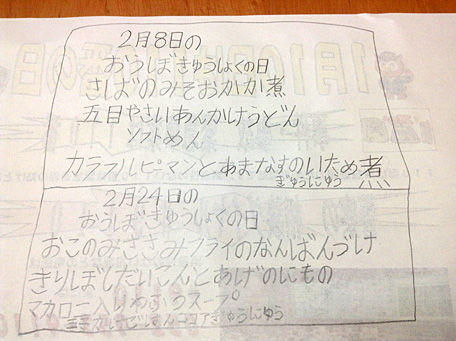 2月8日の
おうぼきゅうしょくの日
さばのみそおかか煮
五目やさいあんかけうどん
ソフトめん
カラフルピマンとあまなすのいため煮
ぎゅうにゅう
2月24日の
おうぼきゅうしょくの日
おこのみささみフライのなんばんづけ
きりぼしだいこんとあげのにもの
マカロニ入りわふうスープ
ココアぎゅうにゅう
1月
の日